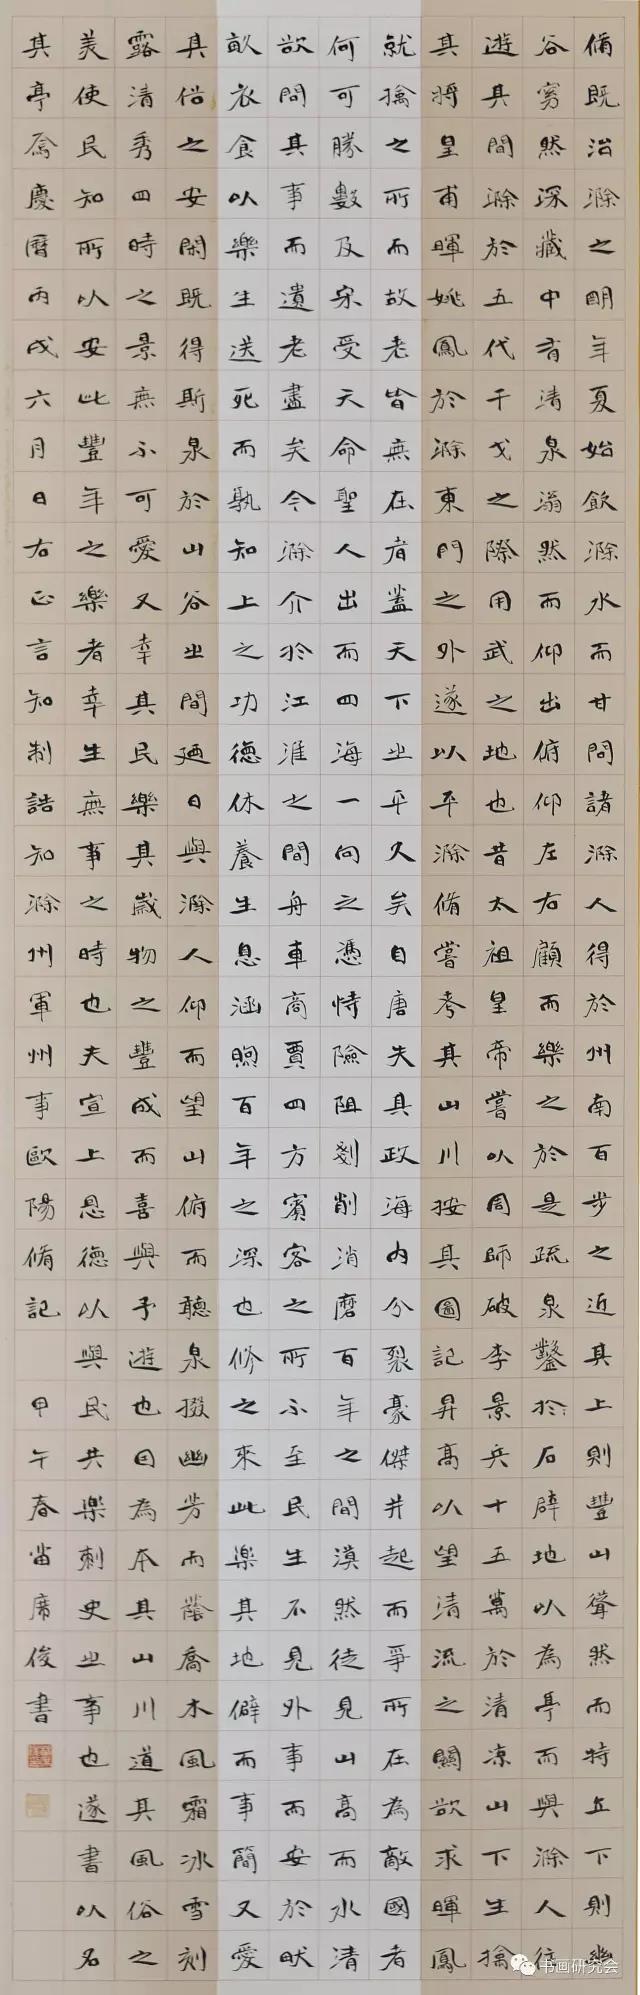 脩既治滁之明年夏始飲滁水而甘問諸滁人得於州南百步之近其上則豐山聳然而特立下則幽
谷窈然深藏中有清泉滃然而仰出俯仰左右顧而樂之於是疏泉鑿於石辟地以為亭而與滁人往
遊其間滁於五代干戈之際用武之地也昔太祖皇帝嘗以周師破李景兵十五萬於清涼山下生擒
其將皇甫暉姚鳳於滁東門之外遂以平滁脩嘗考其山川按其圖記昇高以望清流之關欲求暉鳳
就擒之所而故老皆無在者蓋天下之平久矣自唐失其政海內分裂豪傑并起而爭所在為敵國者
何可勝數及宋受天命聖人出而四海一向之憑恃險阻剗削消磨百年之間漠然徒見山高而水清
欲問其事而遺老盡矣今滁介於江淮之間舟車商賈四方賓客之所不至民生不見外事而安於畎
畝衣食以樂生送死而孰知上之功德休養生息涵煦百年之深也修之來此樂其地僻而事簡又愛
其俗之安閑既得斯泉於山谷之間廼日與滁人仰而望山俯而聽泉掇幽芳而蔭喬木風霜冰雪刻
露清秀四時之景無不可愛又幸其民樂其歲物之豐成而喜與予遊也因為本其山川道其風俗之
美使民知所以安此豐年之樂者幸生無事之時也夫宣上恩德以與民共樂刺史之事也遂書以名
其亭焉慶曆丙戌六月日右正言知制誥知滁州軍州事歐陽脩記
甲午春席俊書
书画研究会